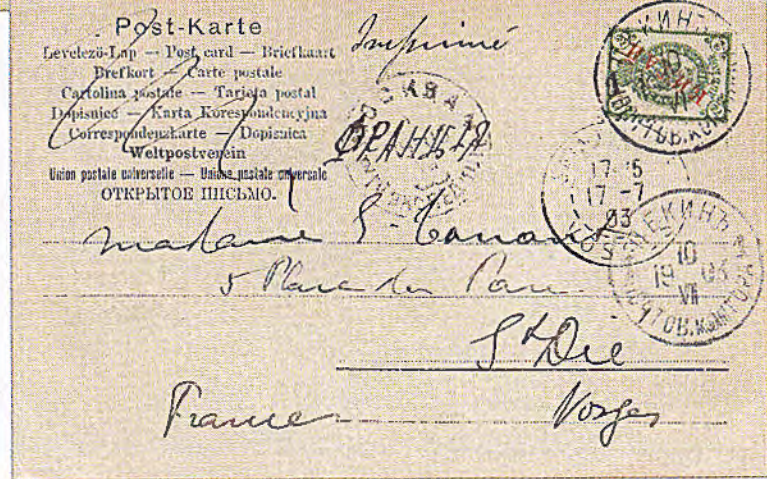 Post-Karte
Levelező-Lap — Post card — Briefkaart
Brefkort — Carte postale
Cartolina postale — Tarjeta postal
Dopisnice — Karta Korespondencyjna
Correspondenzkarte — Dopisnica
Weltpostverein
Union postale universelle — Unione postale universale
ОТКРЫТОЕ ПИСЬМО.
Imprimé
КИТАЙ
ПЕКИНЪ
ПОЧТОВ. КОН
МОСКВА
ФРАНЦІЯ
17-7
03
ПЕКИНЪ
10
19 03
VII
ПОЧТОВ. КОНТОРА
Madame
5 Place du Parc
St Dié
Vosges
France